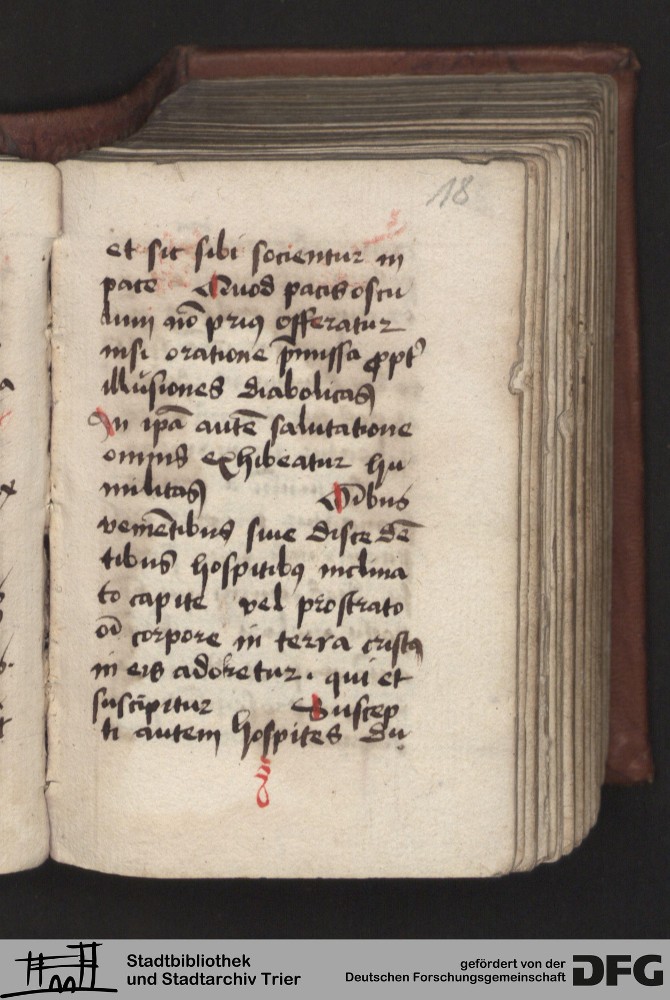 18
et sic sibi socientur in
pace Quod pacis oscu
lum nō prius offeratur
nisi oratione p̄missa ꝓpt̓
illusiones diabolicas
In ipā autē salutatione
omnis exhibeatur hu
militas Oībus
veniētibus siue discedē
tibus hospitibꝰ inclina
to capite vel prostrato
oī corpore in terra cristꝰ
in eis adoretur. qui et
suscipitur Suscep
ti autem hospites du
Stadtbibliothek
und Stadtarchiv Trier
gefördert von der
Deutschen Forschungsgemeinschaft
DFG